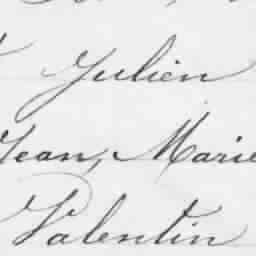 Julien
Jean, Marie
Valentin